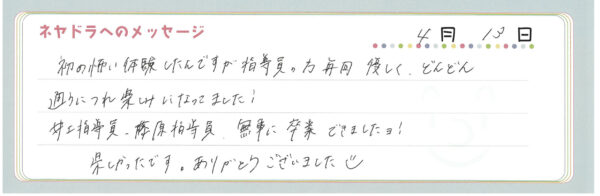 ネヤドラへのメッセージ
4月 13日
初の怖い体験したんですが指導員の方毎回優しく、どんどん
通うにつれ楽しみになってました!
井上指導員、藤原指導員、無事に卒業できましたョ!
楽しかったです。ありがとうございました